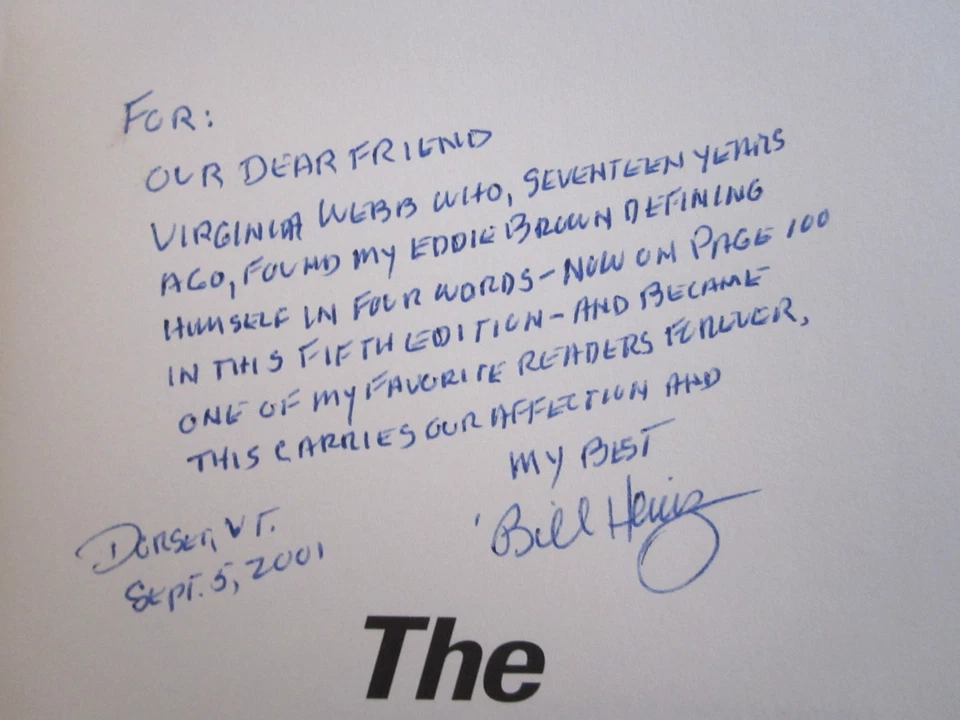 FOR:
OUR DEAR FRIEND
VIRGINIA WEBB WHO, SEVENTEEN YEARS
AGO, FOUND MY EDDIE BROWN DEFINING
HIMSELF IN FOUR WORDS - NOW ON PAGE 100
IN THIS FIFTH EDITION - AND BECAME
ONE OF MY FAVORITE READERS FOREVER,
THIS CARRIES OUR AFFECTION AND
MY BEST
Bill Heinz
DORSET, VT.
SEPT. 5, 2001
The